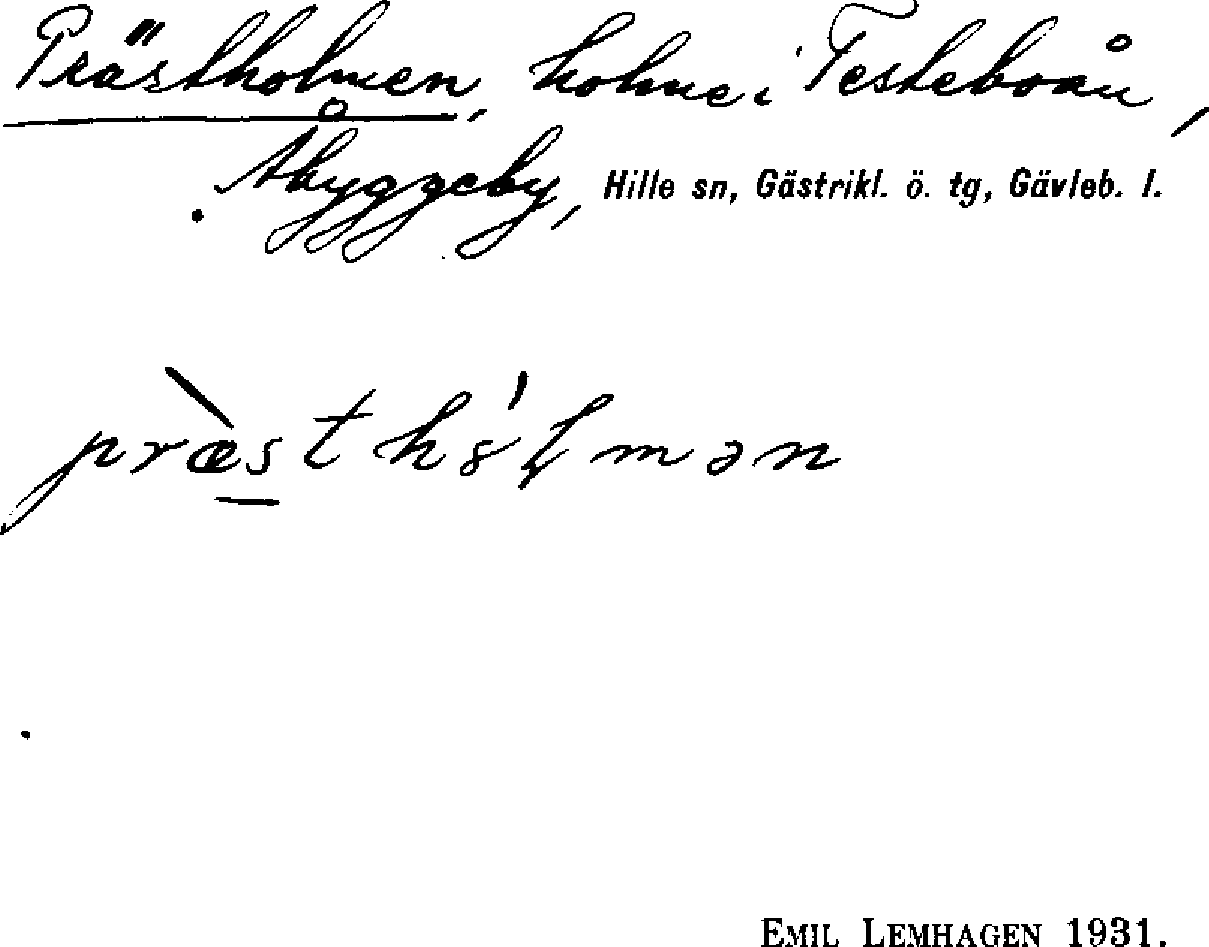 Prästholmen, holme i Testeboån,
Åbyggeby, Hille sn, Gästrikl. ö. tg, Gävleb. l.
præ̀st hȣ́ɭmən
EMIL LEMHAGEN 1931.